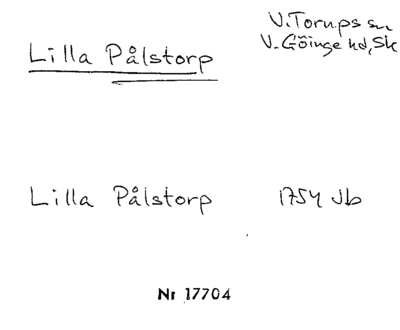 Lilla Pålstorp
V. Torups sn
V. Göinge hd, Sk
Lilla Pålstorp 1754 Jb
Nr 17704